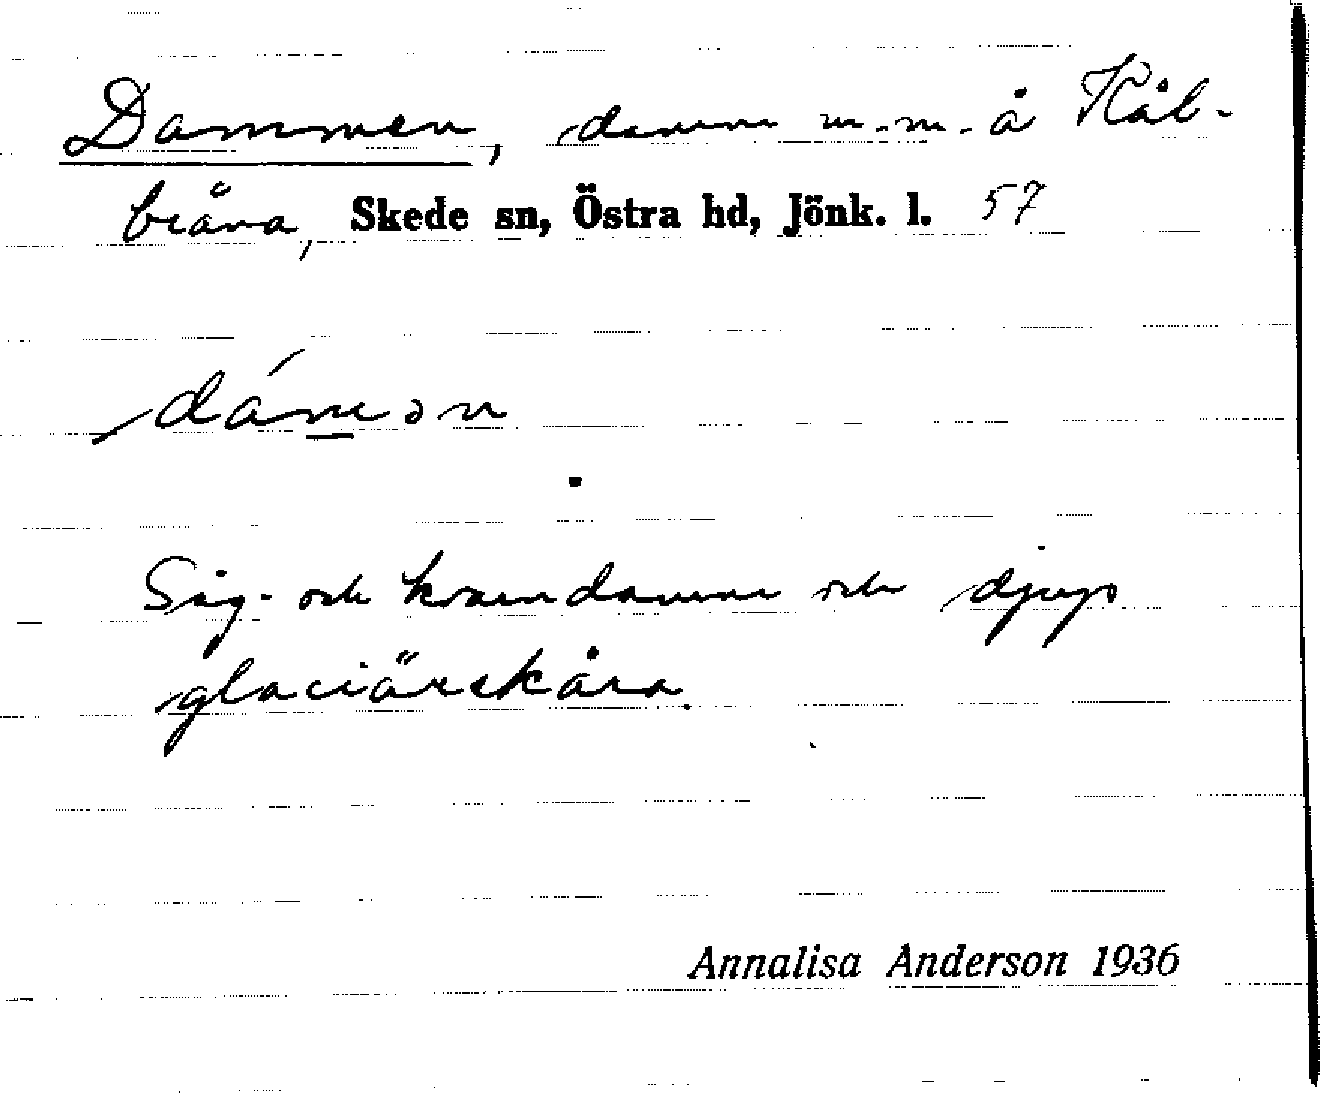 Dammen, damm m.m. å Kål-
bräna, Skede sn, Östra hd, Jönk. l. 57
dámən
Såg- och kvarndamm och djup
glaciärskåra.
Annalisa Anderson 1936